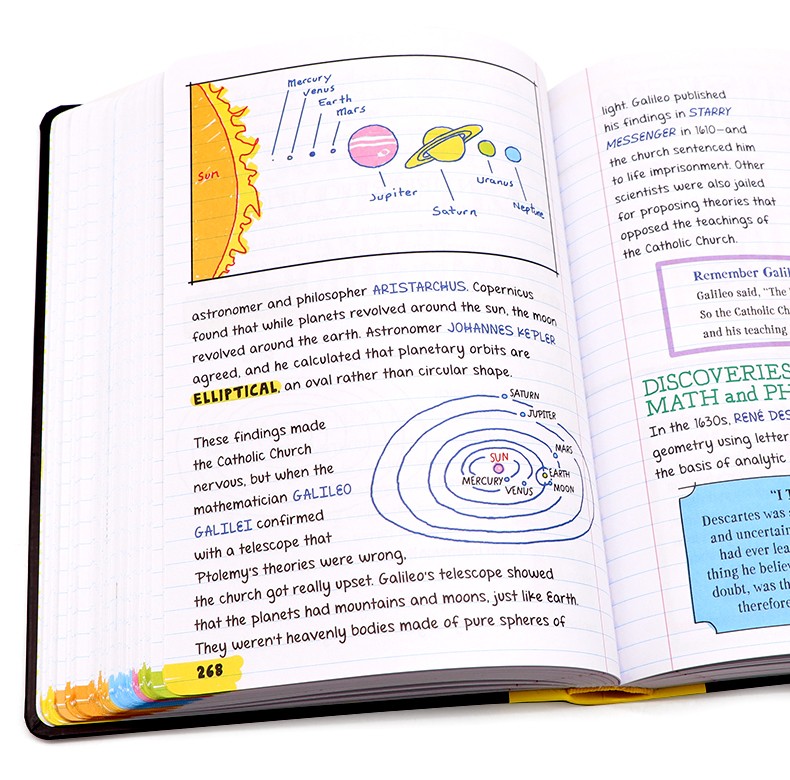 Mercury
Venus
Earth
Mars
Sun
Jupiter
Saturn
Uranus
Neptune
astronomer and philosopher ARISTARCHUS. Copernicus
found that while planets revolved around the sun, the moon
revolved around the earth. Astronomer JOHANNES KEPLER
agreed, and he calculated that planetary orbits are
ELLIPTICAL, an oval rather than circular shape.
These findings made
the Catholic Church
nervous, but when the
mathematician GALILEO
GALILEI confirmed
with a telescope that
Ptolemy's theories were wrong,
the church got really upset. Galileo's telescope showed
that the planets had mountains and moons, just like Earth.
They weren't heavenly bodies made of pure spheres of
SATURN
JUPITER
MARS
SUN
EARTH
MERCURY
VENUS
MOON
268
light. Galileo published
his findings in STARRY
MESSENGER in 1610—and
the church sentenced him
to life imprisonment. Other
scientists were also jailed
for proposing theories that
opposed the teachings of
the Catholic Church.
Remember Galil
Galileo said, "The
So the Catholic Ch
and his teaching
DISCOVERIES
MATH and PH
In the 1630s, RENÉ DES
geometry using letter
the basis of analytic
"I T
Descartes was
and uncertain
had ever lea
thing he believ
doubt, was th
therefore